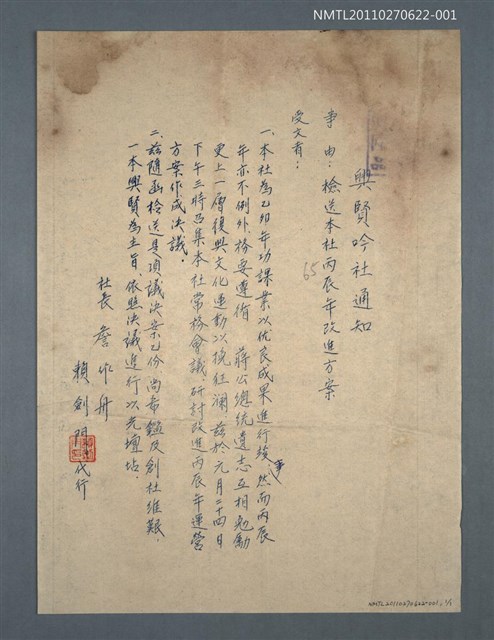 NMTL20110270622-001
興賢吟社通知
事由：檢送本社丙辰年改進方案
65
受文者：
一、本社為乙卯年功課業以优良成果進行竣事，然而丙辰
年亦不例外，務要遵循　蔣公總統遺志互相勉勵
更上一層復興文化運動以挽狂瀾茲於元月二十四日
下午三時召集本社常務會議，研討改進丙辰年運營
方案作成決議．
二、茲隨函檢送是項議決案乙份尚希鑑及創社維艱，
一本興賢為主旨，依照決議進行以光壇坫．
社長　詹作舟
賴劍門代行
NMTL20110270622-001, 1/1